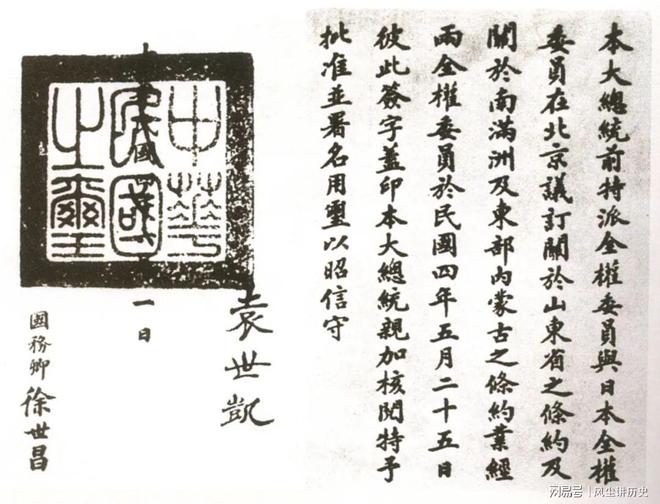 本大總統前特派全權委員與日本全權
委員在北京議訂關於山東省之條約及
關於南滿洲及東部內蒙古之條約業經
兩全權委員於民國四年五月二十五日
彼此簽字蓋印本大總統親加核閱特予
批准並署名用璽以昭信守
袁世凱
中華
民國
之璽
一日
國務卿徐世昌
网易号|风尘讲历史